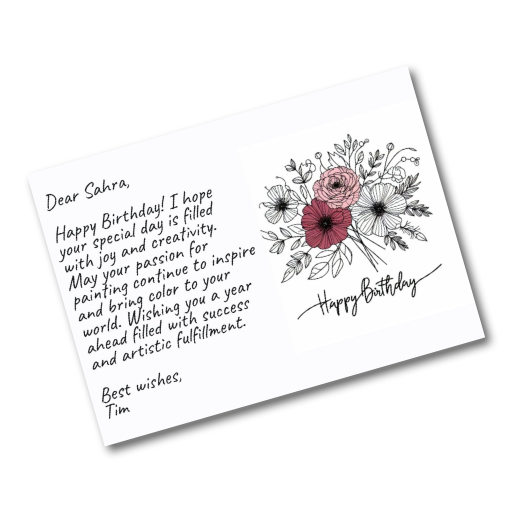 Dear Sahra,
Happy Birthday! I hope
your special day is filled
with joy and creativity.
May your passion for
painting continue to inspire
and bring color to your
world. Wishing you a year
ahead filled with success
and artistic fulfillment.
Best wishes,
Tim
Happy Birthday